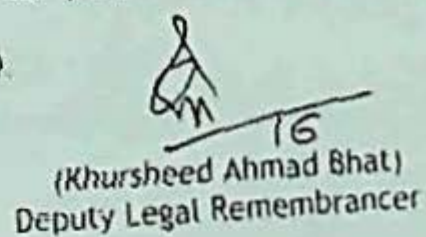 16
(Khursheed Ahmad Bhat)
Deputy Legal Remembrancer